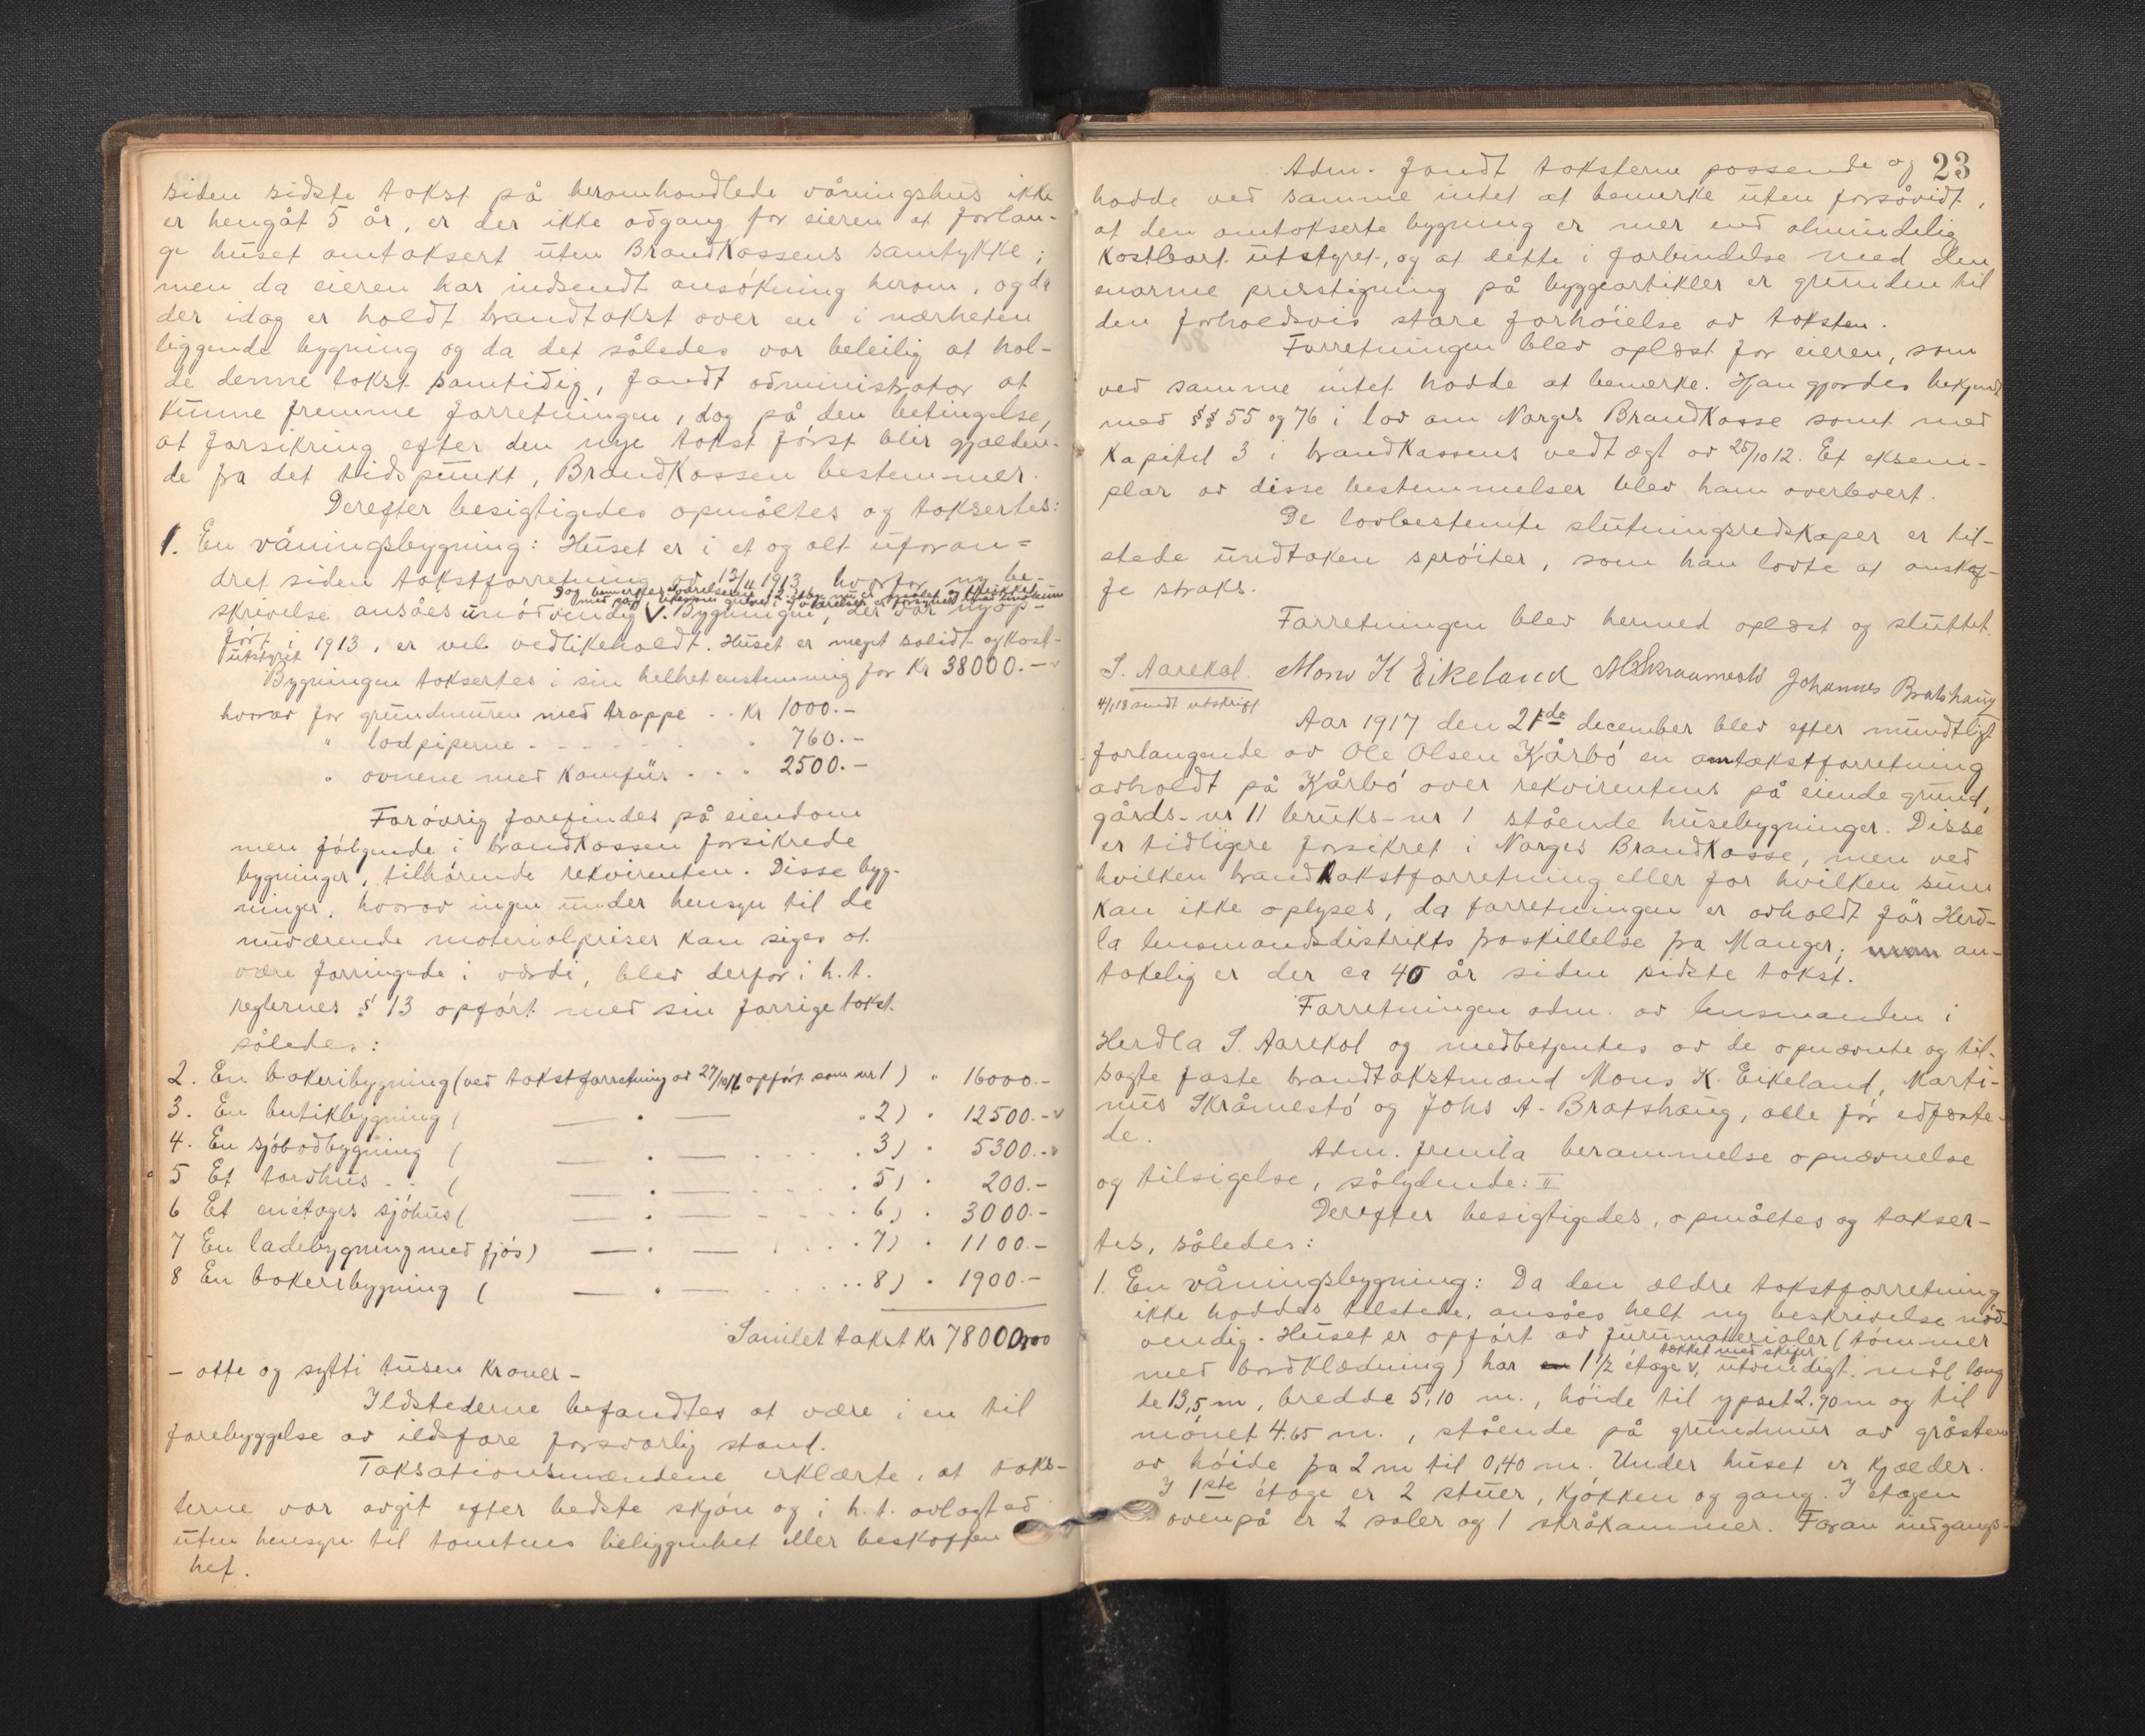 siden sidste takst på heromhandlede våningshus ikke
er hengåt 5 år, er der ikke adgang for eieren at forlan-
ge huset omtaksert uten Brandkassens samtykke;
men da eieren har indsendt ansökning herom, og da
der idag er holdt brandtakst over en i nærheten
liggende bygning og da det således var beleilig at hol-
de denne takst samtidig, fandt administrator at
kunne fremme forretningen, dog på den betingelse,
at forsikring efter den nye takst först blir gjælden-
de fra det tidspunkt, Brandkassen bestemmer.
Derefter besigtigedes opmåltes og taksertes:
1. En våningsbygning: Huset er i et og alt uforan=
dret siden takstforretning av 13/11 1913, hvorfor ny be-
skrivelse ansåes unödvendig V. Bygningen, der var nyop-
fört i 1913, er vel vedlikeholdt. Huset er meget solidt og kost-
utstyret
Bygningen taksertes i sin helhet enstemmig for Kr 38000.-
hvorav for grundmuren med trappe .. Kr 1000.-
" lodpiperne - - - - " 760.-
" ovnene med komfür . . " 2500.-
Forövrig forefindes på eiendom
men fölgende i brandkassen forsikrede
bygninger, tilhörende rekvirenten. Disse byg-
ninger, hvorav ingen under hensyn til de
nuværende materialpriser kan siges at
være forringede i værdi, blev derfor i h.t.
reglernes § 13 opfört med sin forrige takst
således:
2. En bakeribygning (ved takstforretning av 27/10 16 opfört som nr 1) " 16000.-
3. En butikbygning ( — " — " 2) " 12500.-
4. En sjöbodbygning ( — " — . . . . 3) " 5300.-
5 Et torvhus . . ( — " — . . . . 5) " 200.-
6 Et enetages sjöhus ( — " — . . . . 6) " 3000.-
7 En ladebygning med fjös) — " — . . . . 7) " 1100.-
8 En bakeribygning ( — " — . . . . 8) " 1900.-
Samlet takst Kr 78000,00
- otte og sytti tusen kroner -
Ildstederne befandtes at være i en til
forebyggelse av ildsfare forsvarlig stand.
Taksationsmændene erklærte, at taks-
terne var avgit efter bedste skjön og i h.t. avlagt ed
uten hensyn til tomtens beliggenhet eller beskaffen
het.
23
Adm. fandt taksterne passende og
hadde ved samme intet at bemerke uten forsåvidt,
at den omtakserte bygning er mer end almindelig
kostbart utstyret, og at dette i forbindelse med den
enorme prisstigning på byggeartikler er grunden til
den forholdsvis store forhöielse av taksten.
Forretningen blev oplæst for eieren, som
ved samme intet hadde at bemerke. Han gjordes bekjendt
med §§ 55 og 76 i lov om Norges Brandkasse samt med
Kapitel 3 i brandkassens vedtægt av 25/10 12. Et eksem-
plar av disse bestemmelser blev ham overlevert.
De lovbestemte slutningsredskaper er til-
stede undtaken spröiter, som han lovte at anskaf-
fe straks.
Forretningen blev hermed oplæst og sluttet.
S. Aarekol. Mons K Eikeland Johannes Bratshaug
4/1 18 sendt utskrift
Aar 1917 den 21de december blev efter mundtligt
forlangende av Ole Olsen Kårbö en omtakstforretning
avholdt på Kårbö over rekvirentens på eiende grund,
gårds-nr 11 bruks-nr 1 stående husebygninger. Disse
er tidligere forsikret i Norges Brandkasse, men ved
hvilken brandtakstforretning eller for hvilken sum
kan ikke oplyses, da forretningen er avholdt för Herd-
la lensmandsdistrikts fraskillelse fra Manger; an-
takelig er der ca 40 år siden sidste takst.
Forretningen adm. av lensmanden i
Herdla S. Aarekol og medbetjentes av de opnævnte og til-
sagte faste brandtakstmænd Mons K. Eikeland, Marti-
nus Skråmestö og Johs A. Bratshaug, alle för edfæste-
de.
Adm. fremla berammelse opnævnelse
og tilsigelse, sålydende: II
Derefter besigtigedes, opmåltes og takser-
tes, således:
1. En våningsbygning: Da den ældre takstforretning
ikke haddes tilstede, ansåes helt ny beskrivelse nöd-
vendig. Huset er opfört av furumaterialer (tömmer
takket med skifer
med bordklædning) har 1 1/2 etage V, utvendigt mål læng
de 13,5 m, bredde 5,10 m., höide til ypset 2.90 m og til
mönet 4.65 m., stående på grundmur av gråsten
av höide fra 2 m til 0,40 m. Under huset er kjælder.
I 1ste etage er 2 stuer, kjökken og gang. I etagen
ovenpå er 2 saler og 1 småkammer. Foran indgangs-